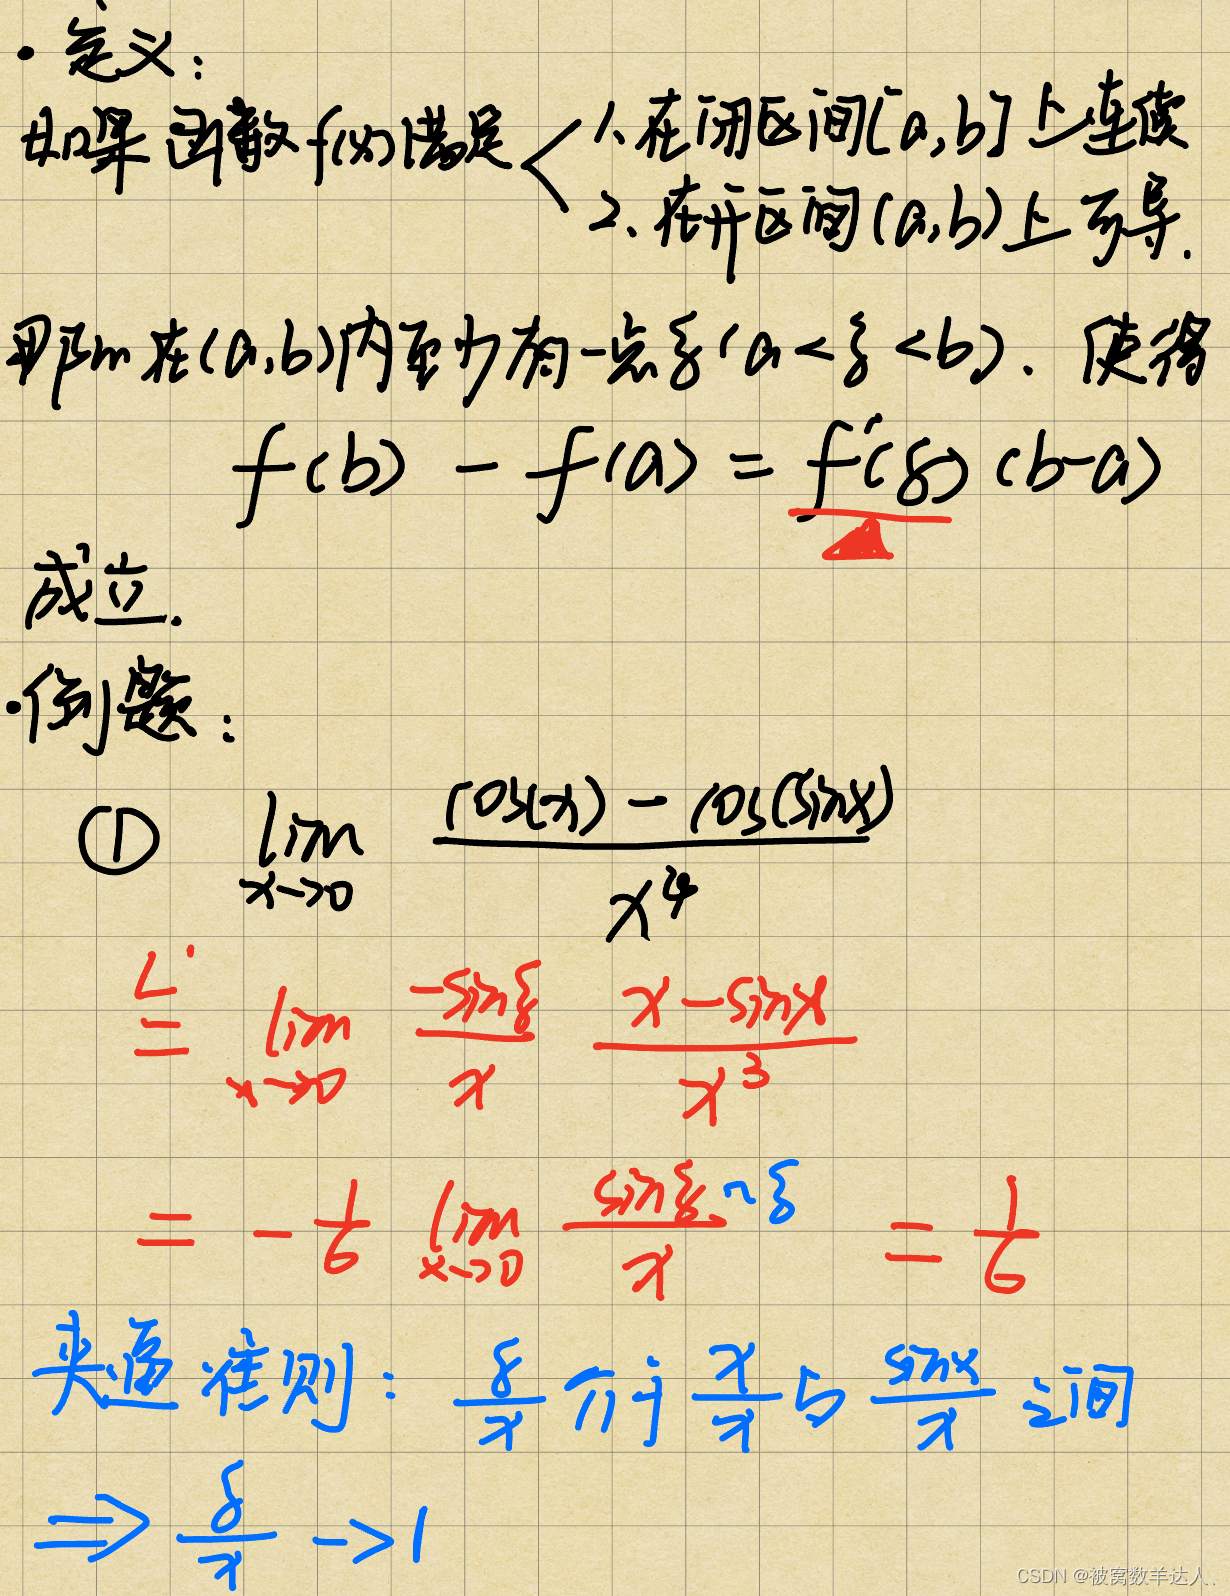 · 定义:
如果函数f(x)满足 1、在闭区间[a,b]上连续
2、在开区间(a,b)上可导.
那么在(a,b)内至少有一点ξ(a<ξ<b). 使得
f(b) - f(a) = f'(ξ)(b-a)
成立.
· 例题:
① lim x→0 (cos(x) - cos(sinx)) / x^4
L' = lim x→0 (-sinξ / x) (x - sinx) / x^3
= -1/6 lim x→0 sinξ ~ξ / x = 1/6
夹逼准则: ξ/x 介于 x/x 与 sinx/x 之间
⇒ ξ/x → 1
CSDN @被窝数羊达人